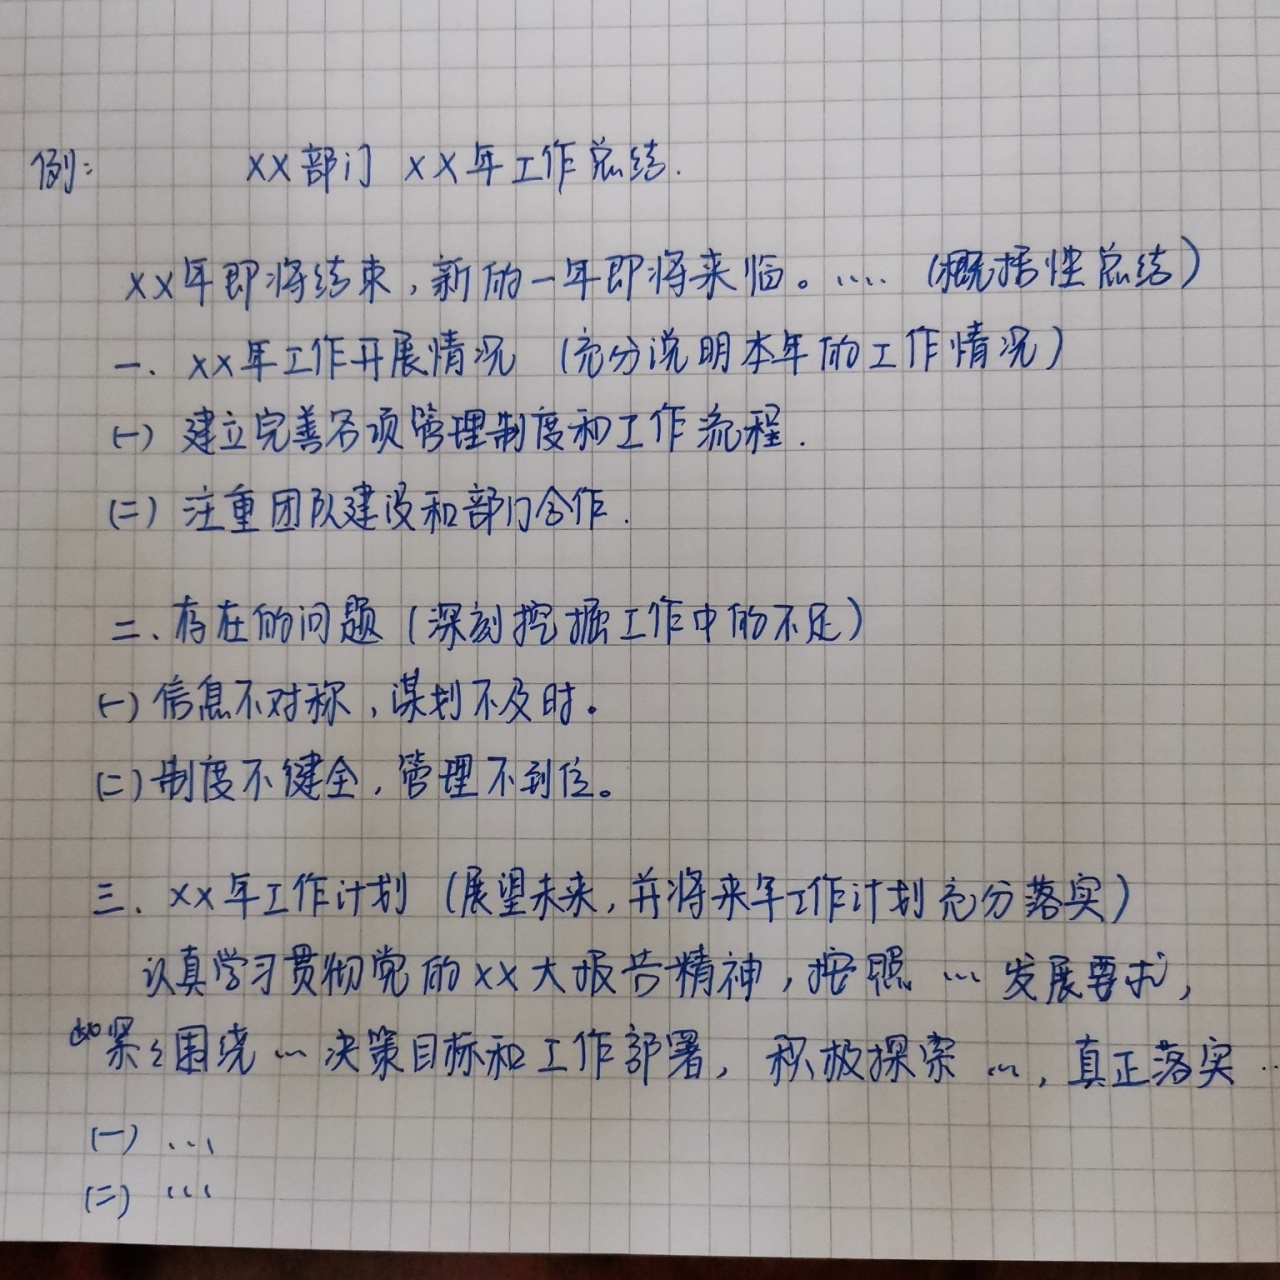 例: XX部门 XX年工作总结.
XX年即将结束,新的一年即将来临。.... (概括性总结)
一、XX年工作开展情况 (充分说明本年的工作情况)
(一) 建立完善各项管理制度和工作流程.
(二) 注重团队建设和部门合作.
二、存在的问题 (深刻挖掘工作中的不足)
(一) 信息不对称,谋划不及时。
(二) 制度不健全,管理不到位。
三、XX年工作计划 (展望未来,并将来年工作计划充分落实)
认真学习贯彻党的XX大报告精神,按照 ... 发展要求,
如紧紧围绕 ... 决策目标和工作部署, 积极探索 ..., 真正落实 ..
(一) ...
(二) ...